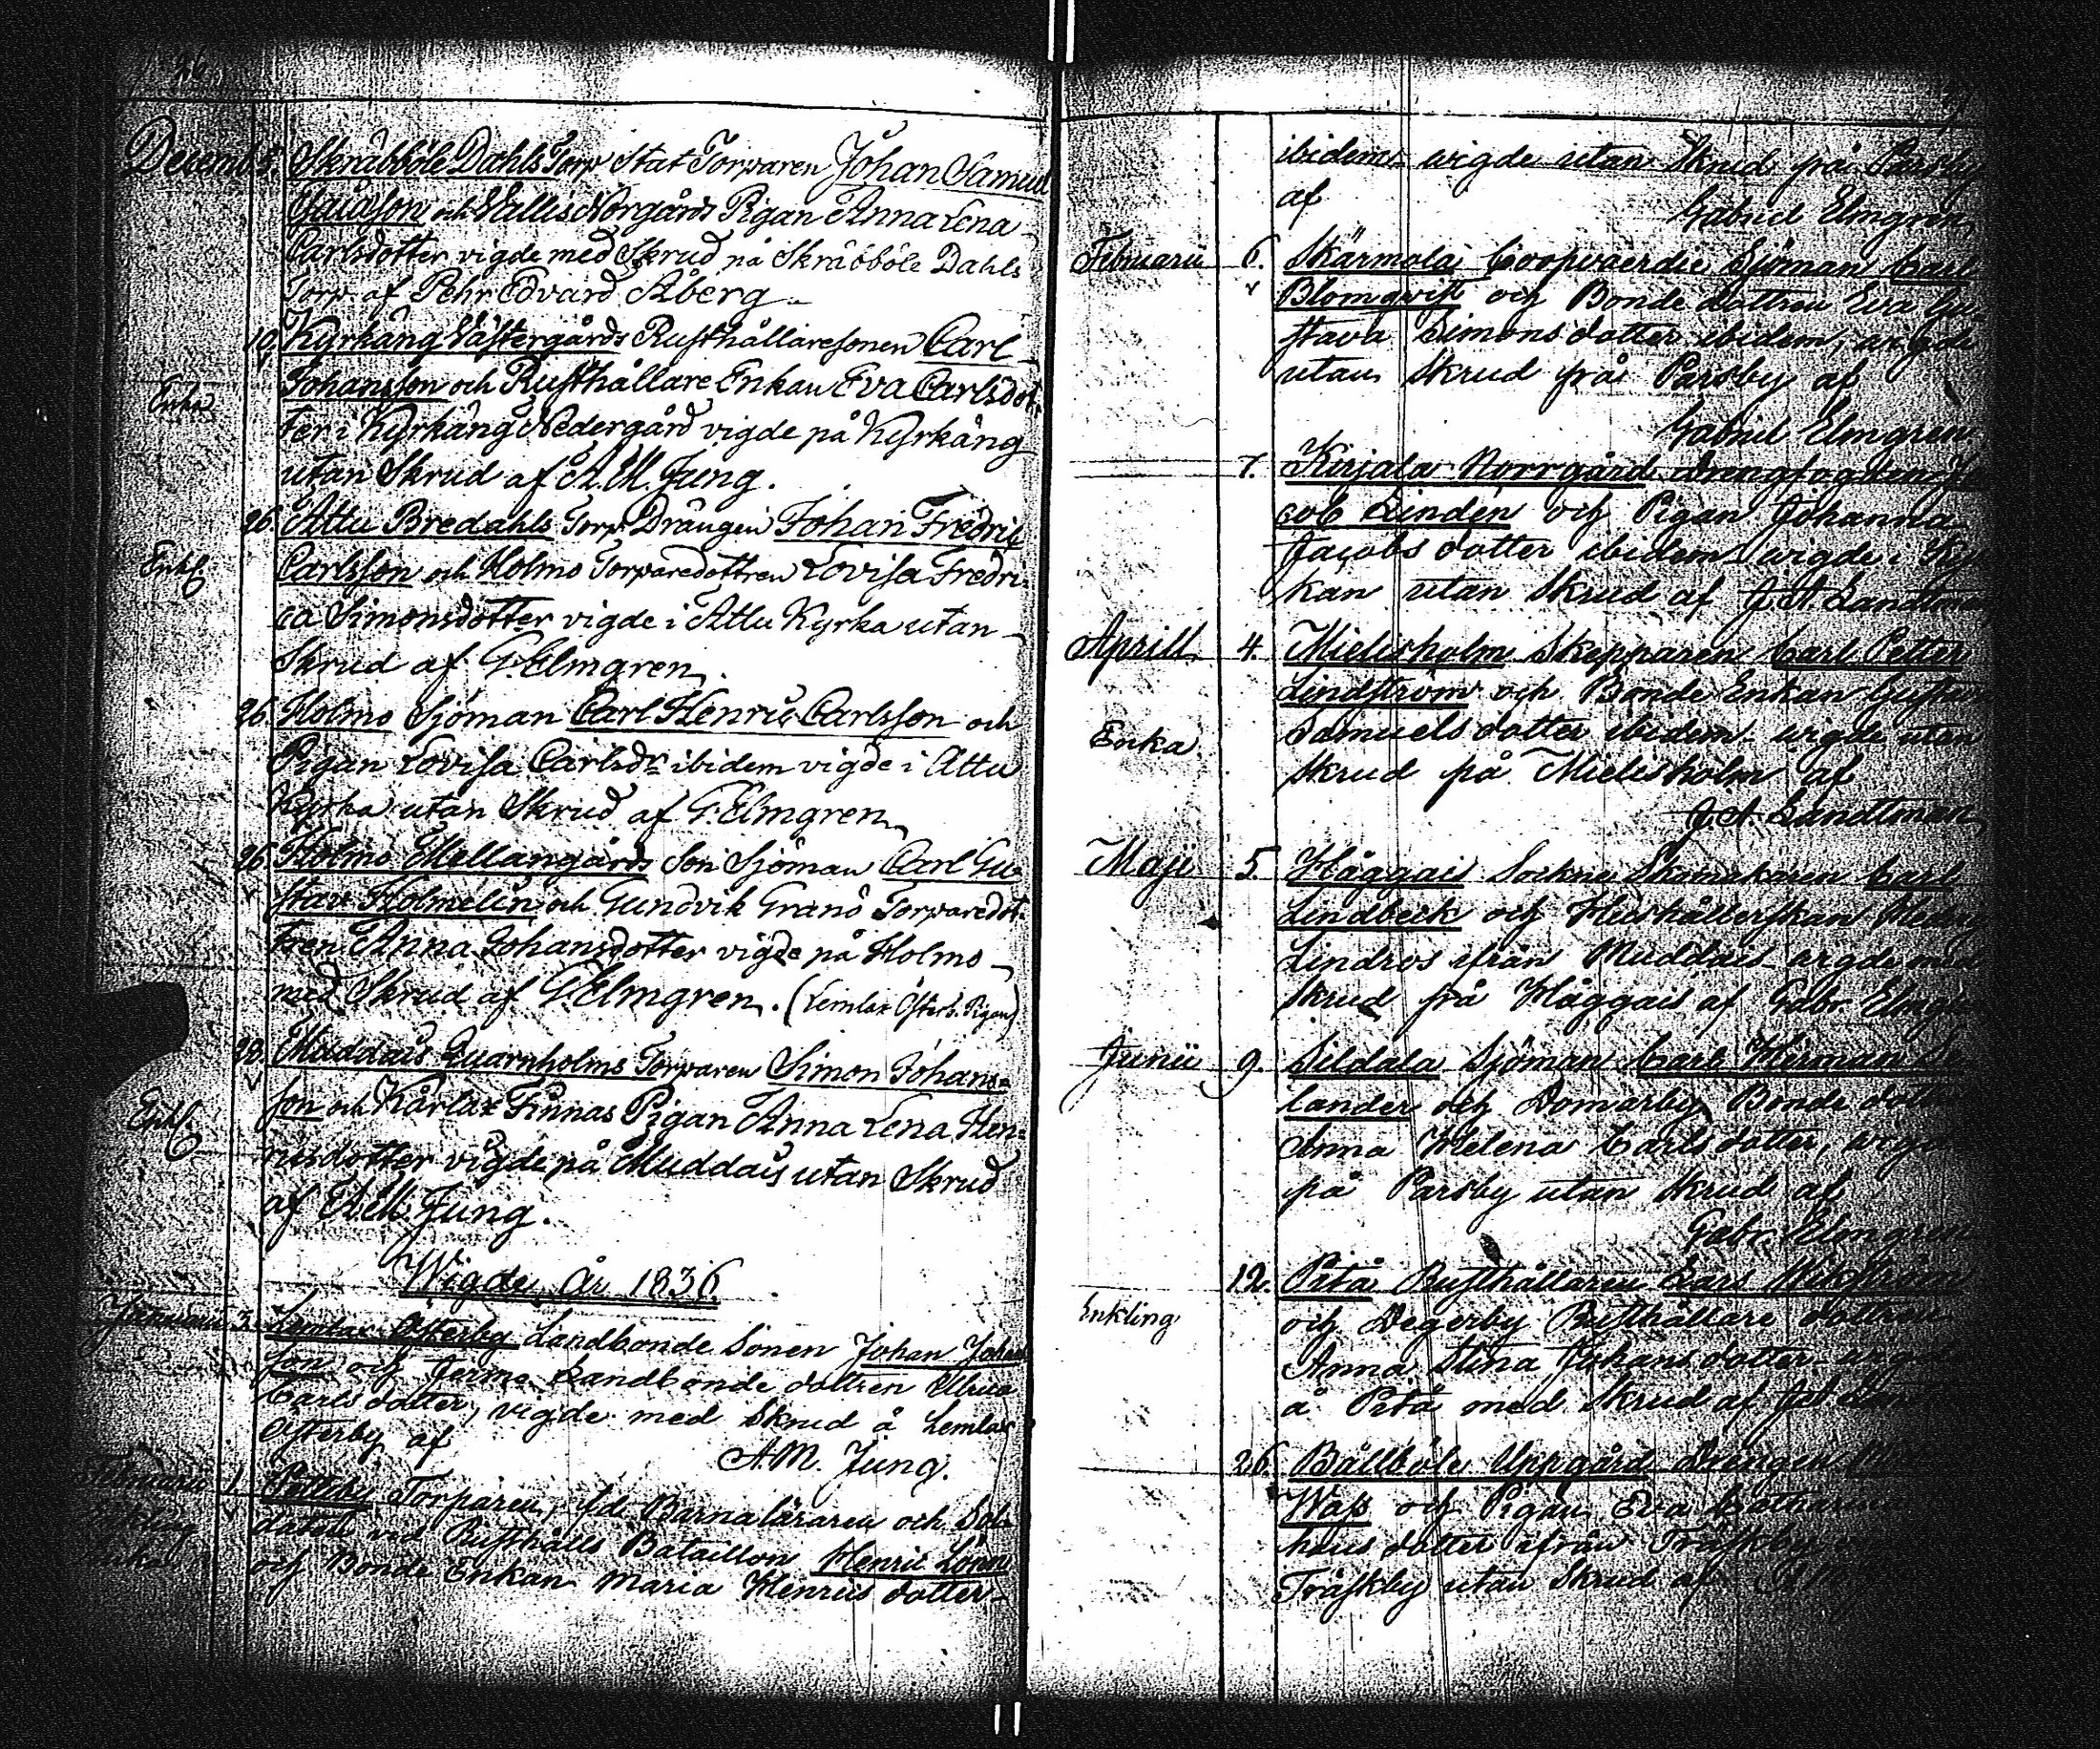 26
Decemb. 5. Skräbböle Dahls Torp Stat Torparen Johan Samuel
och Wallis Norgårds Pigan Anna Lena
Carlsdotter vigde med Skrud på Skräbböle Dahls
Torp af Pehr Edvard Åberg
10. Kyrkäng Västergårds Rusthållaresonen Carl
Enka Johansson och Rusthållare Enkan Eva Carlsdot-
ter i Kyrkäng Nedergård vigde på Kyrkäng
utan Skrud af A. M. Jung.
26. Attu Bredahls Torp Drängen Johan Fredric
Enkl. Carlsson och Holmo Torparedottren Lovisa Fredri-
ca Simonsdotter vigde i Attu Kyrka utan
Skrud af G. Elmgren.
26. Holmo Sjöman Carl Henric Carlsson och
Pigan Lovisa Carlsdr ibidem vigde i Attu
Kyrka utan Skrud af G. Elmgren
26. Holmo Mellangårds Son Sjöman Carl Gu-
stav Holmelin och Gundvik Granö Torparedot-
tren Anna Johansdotter vigde på Holmo
med Skrud af G. Elmgren. (Lemlax Österb. Pigan)
28. Muddais Quarnholms Torparen Simon Johans-
Enkl. son och Kårlax Finnas Pigan Anna Lena Hen-
ricsdotter vigde på Muddais utan Skrud
af A. M. Jung.
Wigde år 1836.
Januarii 3. Lemlax Österby Landbonde Sonen Johan Johans
son och Jermo Landbonde dottren Ulrica
Carlsdotter, vigde med Skrud å Lemlax
Österby af
A. M. Jung.
Februarii 1. Pettby Torparen, f.d. Barnaläraren och Sol-
Enkling daten ved Rusthålls Bataillon Henric Lönn
Enka och Bonde Enkan Maria Henrics dotter
ibidem wigde utan Skrud på Parsby
af
Gabriel Elmgren
Februarii 6. Skärmola Coopvaerdie Sjöman Carl
Blomqvist och Bonde dottren Eva Gu-
stava Simons dotter ibidem, wigde
utan Skrud på Parsby af
Gabriel Elmgren
7. Kirjala Norrgård drengfogden Ja
cob Lindén och Pigan Johanna
Jacobs dotter ibidem wigde i Kyr
kan utan Skrud af J. A. Landtman
Aprill 4. Mielisholm Skepparen Carl Petter
Lindström och Bonde Enkan Gustava
Enka Samuels dotter ibidem wigde utan
Skrud på Mielisholm af
J. A. Landtman
Maji 5. Håggais Sockne Skomakaren Carl
Lindbeck och Hushållerskan Hedvig
Lindros ifrån Muddais wigde
Skrud på Håggais af Gabr. Elmgren
Junii 9. Sildala Sjöman Carl Herman
lander och Domarby Bonde dotter
Anna Helena Carls dotter, wigde
på Parsby utan Skrud af
Gabr. Elmgren
12. Pitä Rusthållaren Lars Wikström
Enkling och Degerby Rusthållare dottren
Anna Stina Johans dotter wigde
å Pitä med Skrud af J A
26. Bällböle Uppgård Drengen
Wass och Pigan Eva Catharina
hans dotter ifrån Träskby
Träskby utan Skrud af